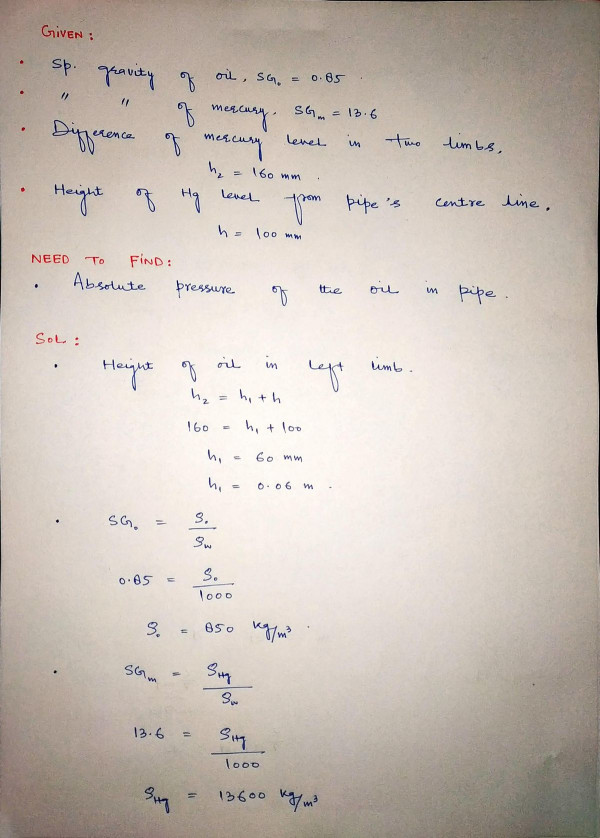 GIVEN :
• Sp. gravity of oil, SG₀ = 0.85 .
• " " of mercury, SGm = 13.6
• Difference of mercury level in two limbs,
h₂ = 160 mm .
• Height of Hg level from pipe's centre line.
h = 100 mm
NEED TO FIND :
• Absolute pressure of the oil in pipe .
SOL :
• Height of oil in left limb .
h₂ = h₁ + h
160 = h₁ + 100
h₁ = 60 mm
h₁ = 0.06 m .
• SG₀ = ρ₀ / ρw
0.85 = ρ₀ / 1000
ρ₀ = 850 kg/m³ .
• SGm = ρHg / ρw
13.6 = ρHg / 1000
ρHg = 13600 kg/m³